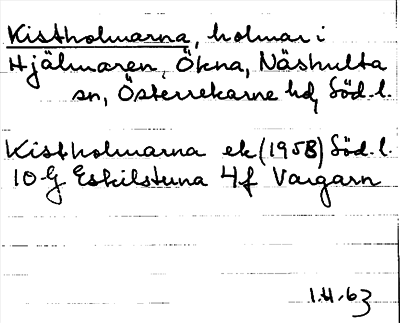 Kistholmarna, holmar i
Hjälmaren, Ökna, Näshulta
sn, Österrekarne hd, Söd.l.
Kistholmarna ek (1958) Söd.l.
10 G Eskilstuna 4f Vargarn
1.4.63